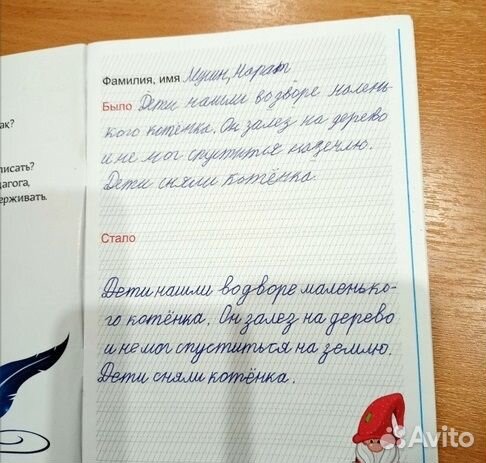 ак?
писать?
дагога,
ерживать.
Фамилия, имя Мунин, Марат
Было Дети нашли во дворе малень-
кого котёнка. Он залез на дерево
и не мог спуститься на землю.
Дети сняли котёнка.
Стало
Дети нашли во дворе маленько-
го котёнка. Он залез на дерево
и не мог спуститься на землю.
Дети сняли котёнка.
Avito